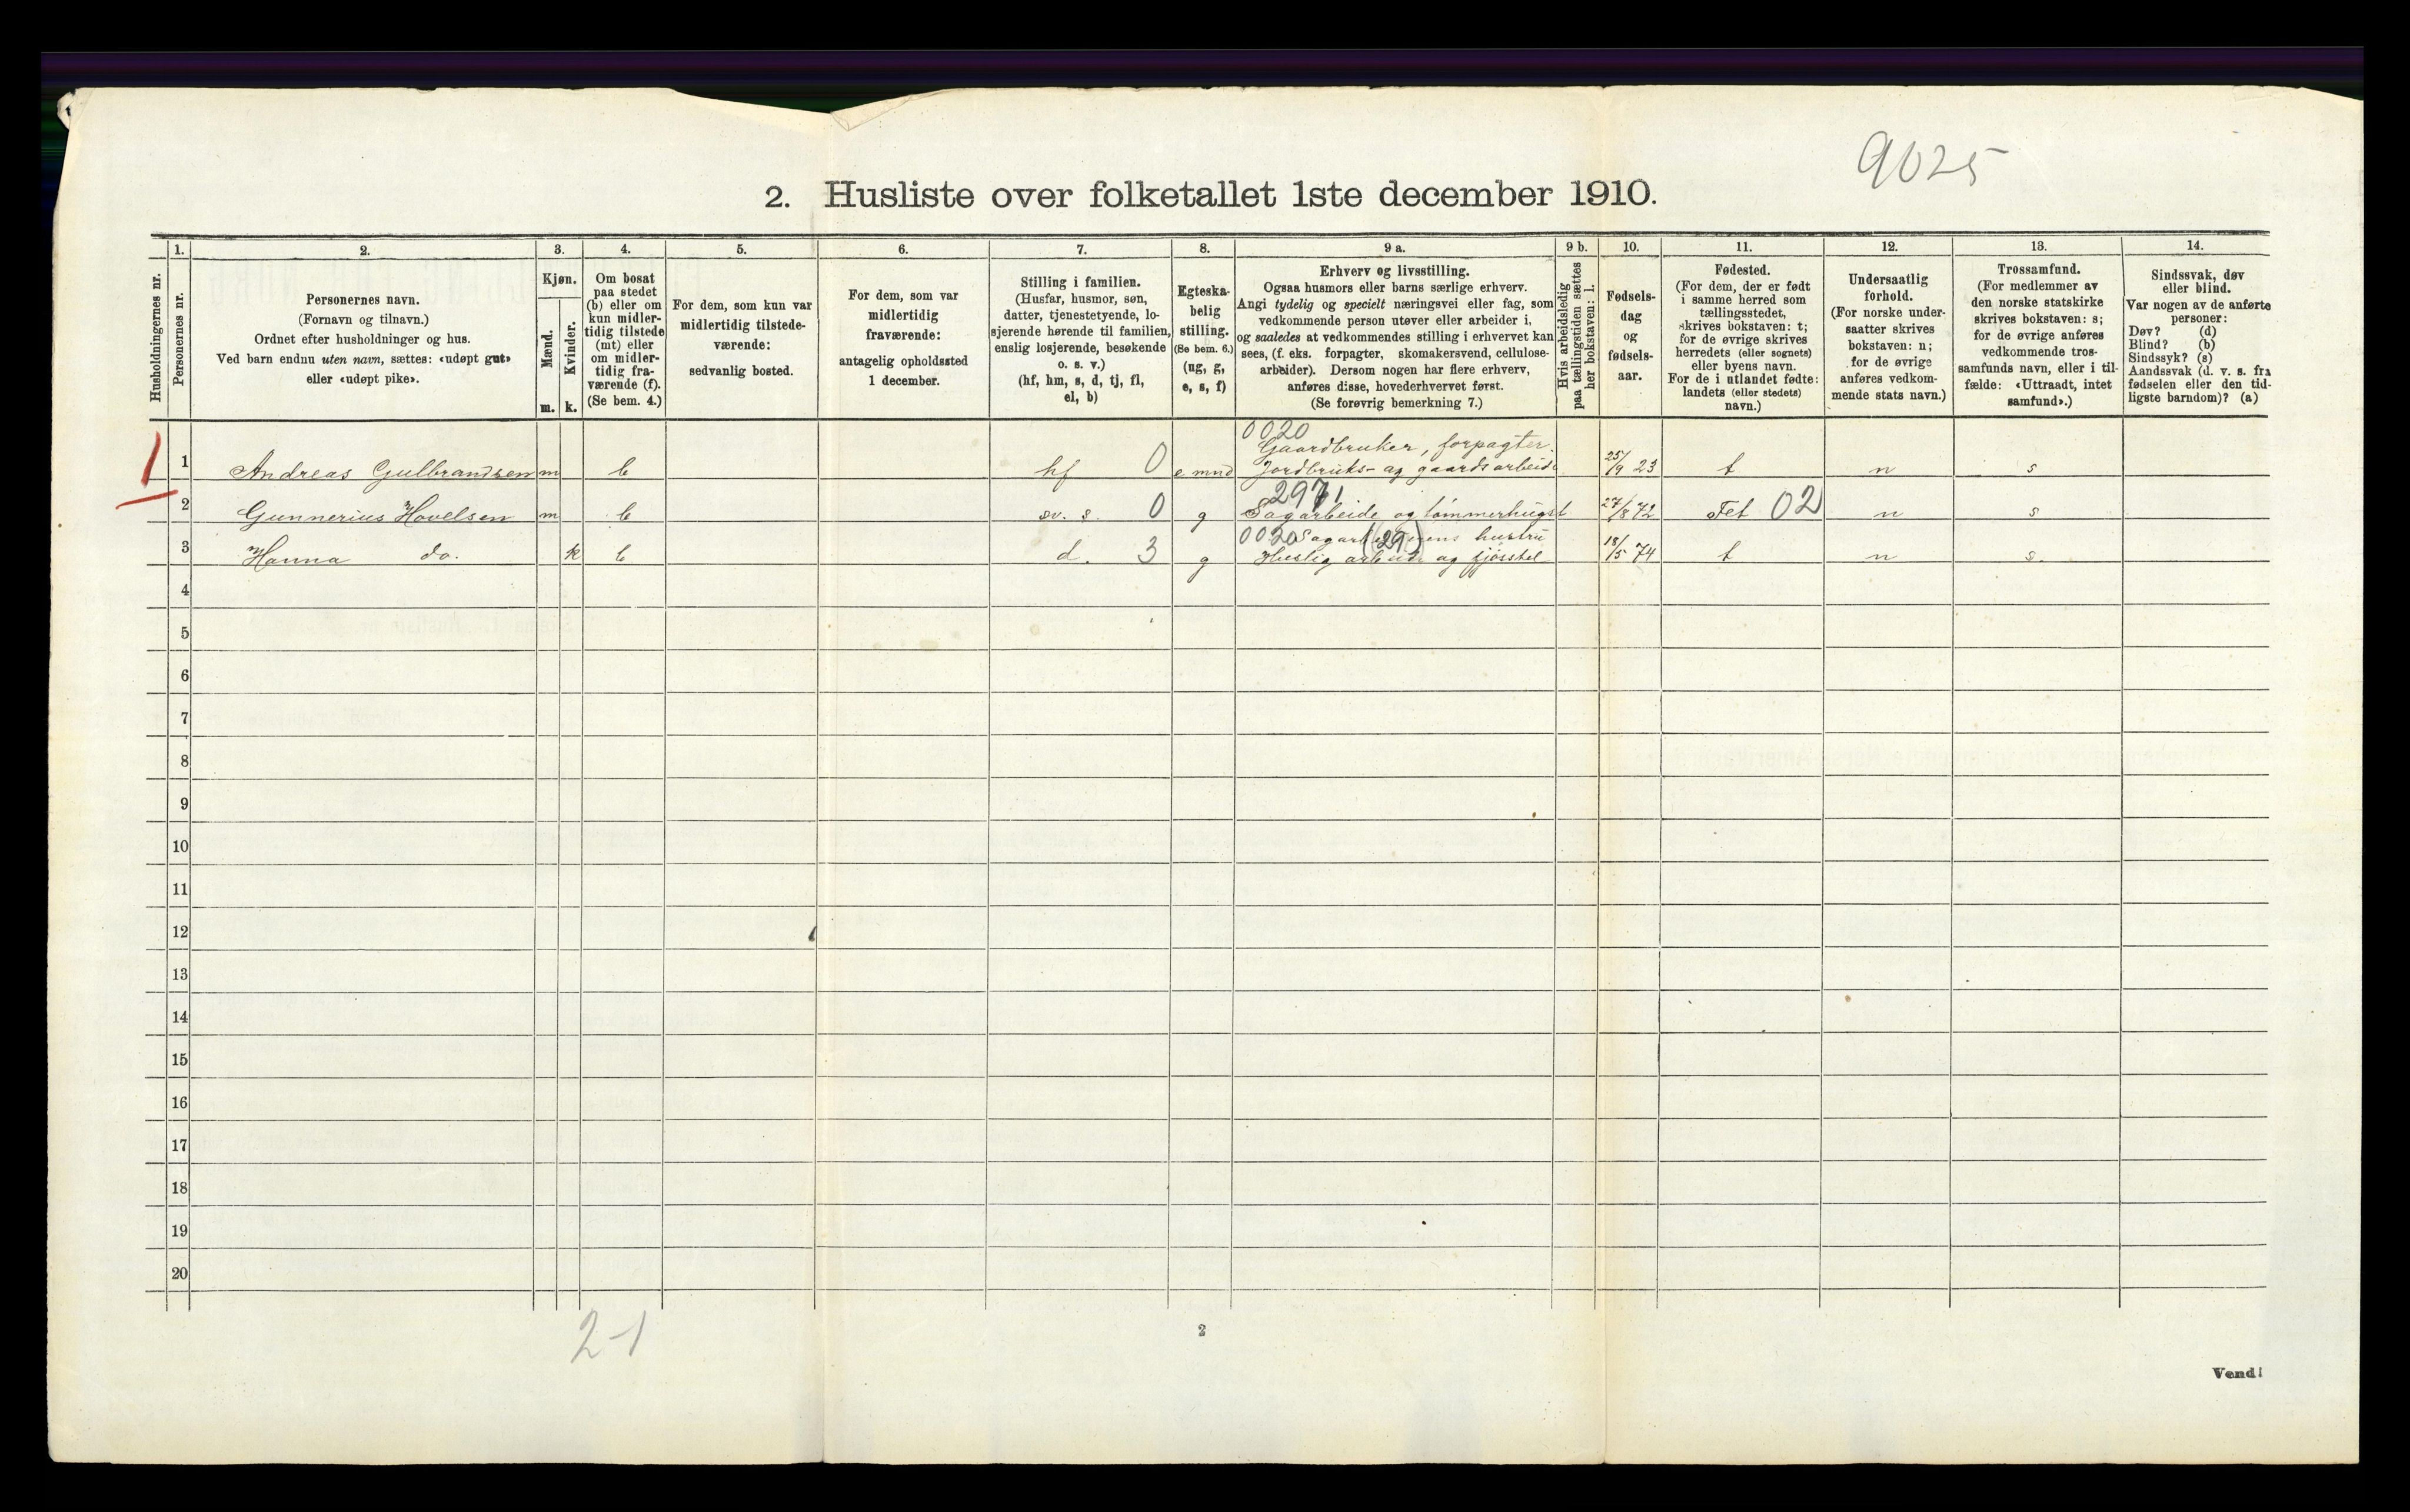 9025
2. Husliste over folketallet 1ste december 1910.
Husholdningernes nr.
1.
Personernes nr.
2.
Personernes navn.
(Fornavn og tilnavn.)
Ordnet efter husholdninger og hus.
Ved barn endnu uten navn, sættes: «udøpt gut»
eller «udøpt pike».
3.
Kjøn.
Mænd.
Kvinder.
m. k.
4.
Om bosat
paa stedet
(b) eller om
kun midler-
tidig tilstede
(mt) eller
om midler-
tidig fra-
værende (f).
(Se bem. 4.)
5.
For dem, som kun var
midlertidig tilstede-
værende:
sedvanlig bosted.
6.
For dem, som var
midlertidig
fraværende:
antagelig opholdssted
1 december.
7.
Stilling i familien.
(Husfar, husmor, søn,
datter, tjenestetyende, lo-
sjerende hørende til familien,
enslig losjerende, besøkende
o. s. v.)
(hf, hm, s, d, tj, fl,
el, b)
8.
Egteska-
belig
stilling.
(Se bem. 6.)
(ug, g,
e, s, f)
9 a.
Erhverv og livsstilling.
Ogsaa husmors eller barns særlige erhverv.
Angi tydelig og specielt næringsvei eller fag, som
vedkommende person utøver eller arbeider i,
og saaledes at vedkommendes stilling i erhvervet kan
sees, (f. eks. forpagter, skomakersvend, cellulose-
arbeider). Dersom nogen har flere erhverv,
anføres disse, hovederhvervet først.
(Se forøvrig bemerkning 7.)
9 b.
Hvis arbeidsledig
paa tællingstiden sættes
her bokstaven: l.
10.
Fødsels-
dag
og
fødsels-
aar.
11.
Fødested.
(For dem, der er født
i samme herred som
tællingsstedet,
skrives bokstaven: t;
for de øvrige skrives
herredets (eller sognets)
eller byens navn.
For de i utlandet fødte:
landets (eller stedets)
navn.)
12.
Undersaatlig
forhold.
(For norske under-
saatter skrives
bokstaven: n;
for de øvrige
anføres vedkom-
mende stats navn.)
13.
Trossamfund.
(For medlemmer av
den norske statskirke
skrives bokstaven: s;
for de øvrige anføres
vedkommende tros-
samfunds navn, eller i til-
fælde: «Uttraadt, intet
samfund».)
14.
Sindssvak, døv
eller blind.
Var nogen av de anførte
personer:
Døv? (d)
Blind? (b)
Sindssyk? (s)
Aandssvak (d. v. s. fra
fødselen eller den tid-
ligste barndom)? (a)
0020
Gaardbruker, forpagter.
1 1 Andreas Gulbrandsen m b hf 0 e Jordbruks- og gaardsarbeide 25/9 23 t n s
2971
2 Gunnerius Hovelsen m b sv. s. 0 g Sagarbeide og tømmerhugst 27/8 72 Fet 02 n s
0020 (29) hustru
3 Hanna do. k b d. 3 g Huslig arbeide og fjøsstel 18/5 74 t n s.
4
5
6
7
8
9
10
11
12
13
14
15
16
17
18
19
20
2-1
2
Vend!